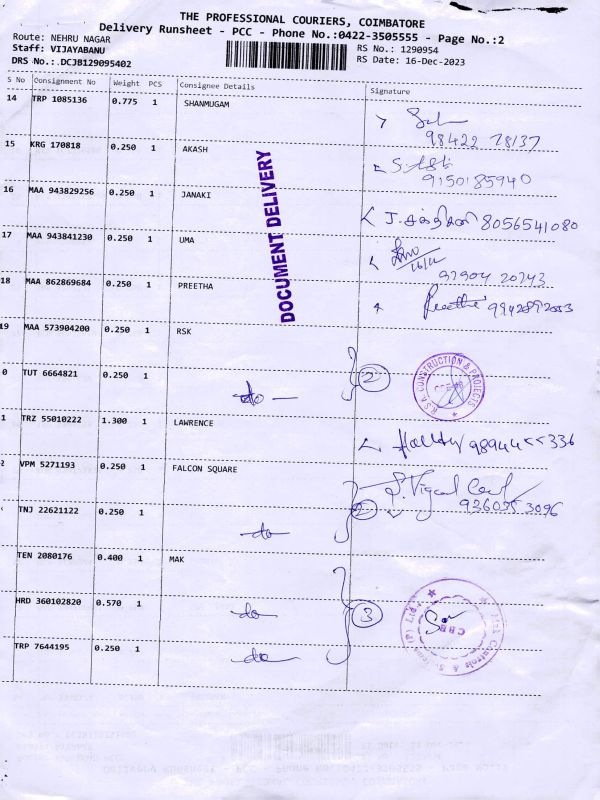 THE PROFESSIONAL COURIERS, COIMBATORE
Delivery Runsheet - PCC - Phone No.:0422-3505555 - Page No.:2
Route: NEHRU NAGAR
Staff: VIJAYABANU
DRS No.:.DCJB129095402
RS No.: 1290954
RS Date: 16-Dec-2023
S No Consignment No Weight PCS Consignee Details Signature
14 TRP 1085136 0.775 1 SHANMUGAM
98422 78137
15 KRG 170818 0.250 1 AKASH
9150185940
16 MAA 943829256 0.250 1 JANAKI
8056541080
17 MAA 943841230 0.250 1 UMA
97904 20743
18 MAA 862869684 0.250 1 PREETHA
Preetha 9942892003
19 MAA 573904200 0.250 1 RSK
0 TUT 6664821 0.250 1 do 2
R.S.K. CONSTRUCTION & PROJECTS
1 TRZ 55010222 1.300 1 LAWRENCE
9894455336
2 VPM 5271193 0.250 1 FALCON SQUARE
TNJ 22621122 0.250 1 do 2
TEN 2080176 0.400 1 MAK
HRD 360102820 0.570 1 do 3
TRP 7644195 0.250 1 do
Mak Controls & Systems (P) Ltd.
CBE
DOCUMENT DELIVERY